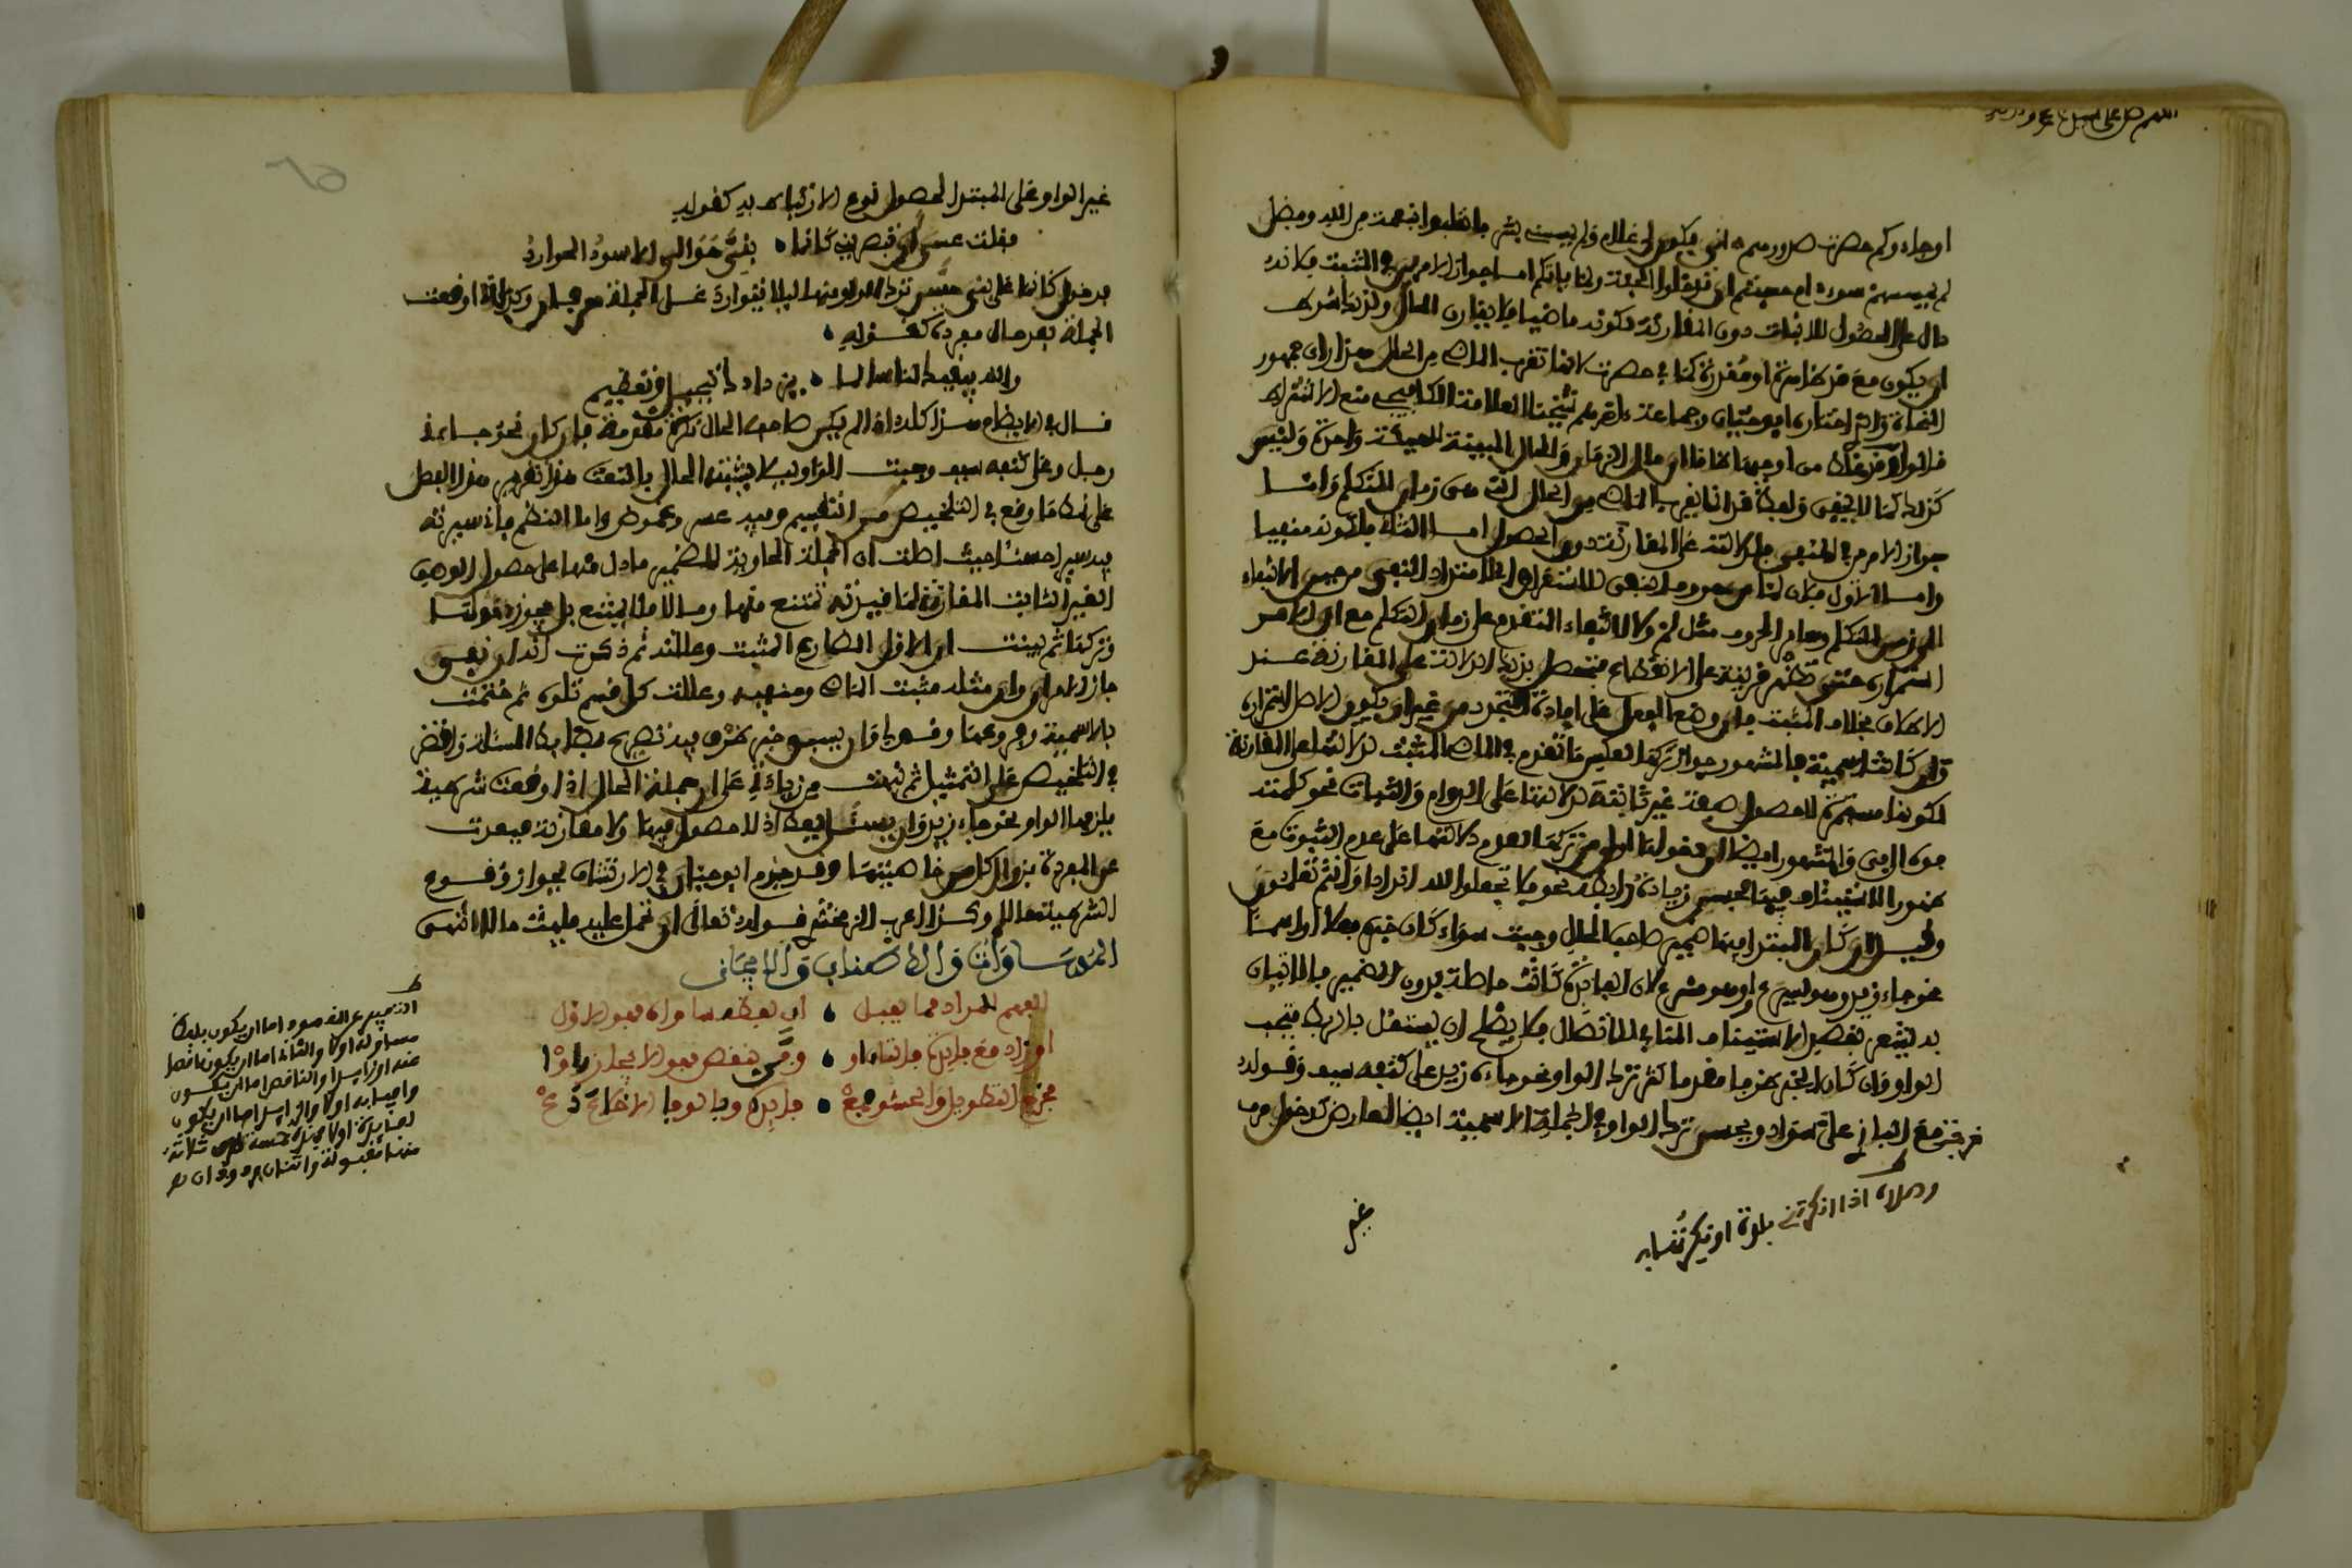 اللهم صل على
او جاءوكم حصرت صدورهم انى يكون لى غلام ولم يمسسنى بشر فانقلبوا بنعمة من الله وفضل
لم يمسسهم سوء ام حسبتم ان تدخلوا الجنة ولما ياتكم اما جواز الامرين في المثبت فلانه
دال على الحصول للاثبات دون المقارنة لكونه ماضيا فلا يقارن الحال ولذا شرط
ان يكون مع قد ظاهرة او مقدرة كما في حصرت لانها تقرب الماضى من الحال هذا راى جمهور
النحاة والذى اختاره ابو حيان وجماعة واقرهم شيخنا العلامة الكافيجى منع الاشتراط
قالوا وقد غلط من اوجبها ظانا ان حال الزمان والحال المبينة للهيئة واحدة وليس
كذلك كما لا يخفى ولفظ قد انما يقرب الماضى من الحال التى هى زمان المتكلم واما
جواز الامرين في المنفى فلدلالته على المقارنة دون الحصول اما الثانى فلكونه منفيا
واما الاول فلان لما من حروف النفى للاستغراق اى لامتداد النفى من حين الانتفاء
الى زمن المتكلم وسائر الحروف مثل لم ولا لانتفاء المتقدم على زمان التكلم مع ان الاصل
استمراره حتى تظهر قرينة على الانقطاع فتحصل بذلك الدلالة على المقارنة عند
الاطلاق بخلاف المثبت فان وضع الفعل على افادة التجدد من غير ان يكون الاصل استمراره
وان كانت اسمية فالمشهور جواز تركها لعكس ما تقدم في الماضى المثبت لدلالتها على المقارنة
لكونها مستمرة لا حصول صفة غير ثابتة لدلالتها على الدوام والثبات نحو كلمته
فوه الى فى والمشهور ايضا ان دخولها اولى من تركها لعدم دلالتها على عدم الثبوت مع
ظهور الاستئناف فيها فحسن زيادة رابط نحو فلا تجعلوا لله اندادا وانتم تعلمون
وقيل ان كان المبتدا فيها ضمير صاحب الحال وجبت سواء كان خبره فعلا او اسما
نحو جاء زيد وهو يسرع او وهو مسرع لان الفائدة كانت حاصلة بدون الضمير فالاتيان
به يشعر بقصد الاستئناف المنافى للاتصال فلا يصلح ان يستقل بالربط فتجب
الواو وان كان الخبر ظرفا مقدما كثر ترك الواو نحو جاء زيد على كتفه سيف وقوله
خرجت مع البازى على سواد ويحسن ترك الواو في الجملة الاسمية ايضا لعارض كدخول حرف
وصلاه اذا انكرتنى بلدة او نكرتها به
غير
غير الواو على المبتدا لحصول نوع الارتباط به كقوله
فقلت عسى ان تبصرينى كانما • بنى حوالى الاسود الحوارد
فدخول كانما على بنى حسن ترك الواو منها ليلا يتوارد على الجملة حرفان وكذا اذا وقعت
الجملة بعد حال مفردة كقوله •
والله يبقيك لنا سالما • برداك تبجيل وتعظيم
قال في الايضاح هذا كله اذا لم يكن صاحب الحال نكرة مقدمة فان كان نحو جاءنى
رجل وعلى كتفه سيف وجبت الواو ليلا يشتبه الحال بالنعت هذا تقرير هذا الفصل
على نمط ما وقع في التلخيص من التقسيم وفيه عسر وغموض واما النظم فانى سيرته
فيه سيرا حسنا حيث اطلقت ان الجملة الحاوية للضمير ما دل منها على حصول الوصف
الغير الثابت المقارن لما قيدته تمتنع منها وما لا فلا يمتنع بل يجوز دخولها
وتركها ثم بينت ان الاول المضارع المثبت وعللته ثم ذكرت انه ان نفى
جاز الامران وان مثله مثبت الماضى ومنفيه وعللت كل قسم تلوه ثم ختمت
بالاسمية وفروعها وقولى وان يسبق خبر ظرف فيه تصريح بضابط المسئلة واقتصر
في التلخيص على التمثيل ثم نبهت من زيادتى على ان جملة الحال اذا وقعت شرطية
يلزمها الواو نحو جاء زيد وان يسئل يعط اذ لا حصول فيها ولا مقارنة فبعدت
عن المفردة بزوال كل من خاصيتها وقد جزم ابو حيان في الارتشاف بجواز وقوع
الشرطية حالا وكذا اعرب الزمخشرى قوله تعالى ان تحمل عليه يلهث حالا انتهى
المساواة والاطناب والايجاز
الفهم المراد مما يعقل • ان بلفظ ساواه فهو الاول
او زاد مع فائدة فالثانى او • وفى بنقص فهو الايجاز راوا
مخرج التطويل والحشو مع • فائدة وبالوفا الاخلال دع
التعبير عن المقصود اما ان يكون بلفظ
مساو له اولا والثانى اما ان يكون ناقصا
عنه او زايدا والناقص اما ان يكون
وافيا به اولا والزايد اما ان يكون
لفايدة اولا فهذه خمسة طرق ثلاثة
منها مقبولة واثنان مردودان